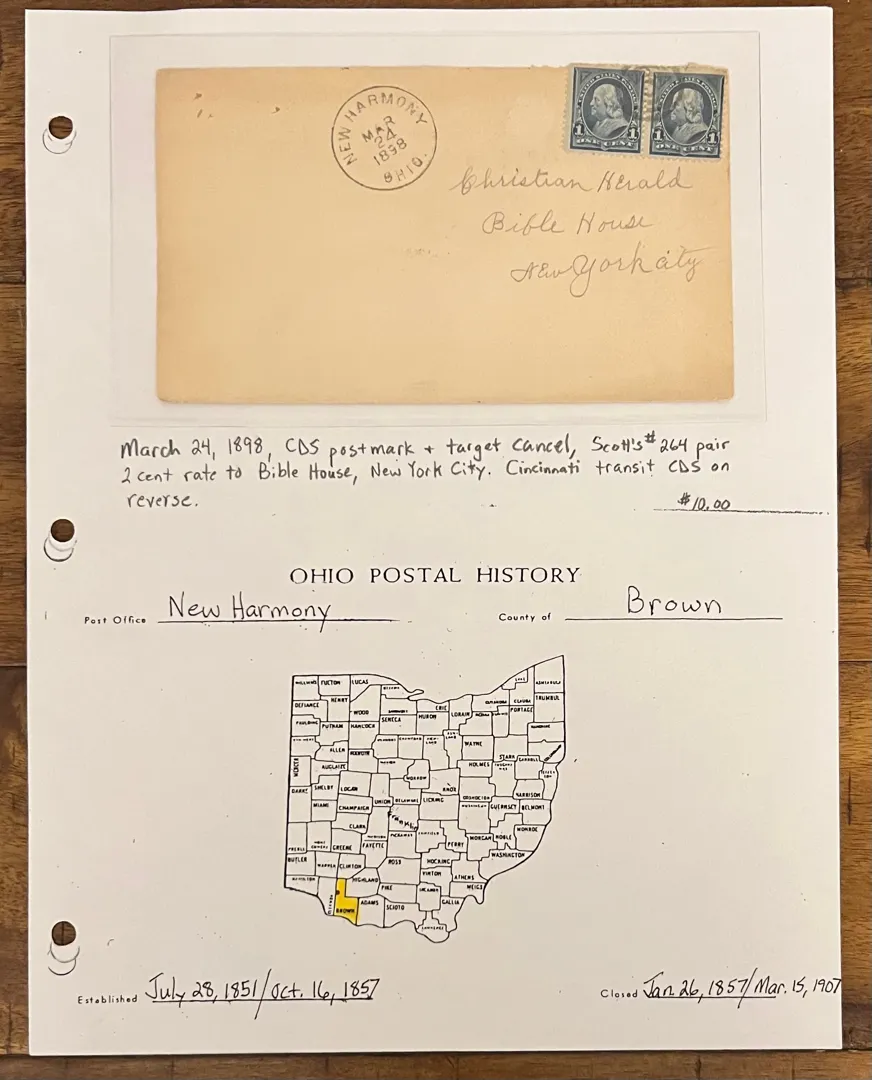 NEW HARMONY
MAR
24
1898
OHIO.
UNITED STATES POSTAGE
1 ONE CENT 1
UNITED STATES POSTAGE
1 ONE CENT 1
Christian Herald
Bible House
New York city
March 24, 1898, CDS postmark + target cancel, Scott's #264 pair
2 cent rate to Bible House, New York City. Cincinnati transit CDS on
reverse.
$10.00
OHIO POSTAL HISTORY
Post Office New Harmony County of Brown
WILLIAMS FULTON LUCAS ASHTABULA
DEFIANCE HENRY WOOD SENECA HURON ERIE LORAIN GEAUGA TRUMBUL
PAULDING PUTNAM HANCOCK PORTAGE
ALLEN WAYNE STARK CARROLL
MERCER AUGLAIZE HOLMES
DARKE SHELBY LOGAN MORROW KNOX HARRISON
MIAMI CHAMPAIGN UNION DELAWARE LICKING GUERNSEY BELMONT
CLARK Franklin MONROE
PREBLE GREENE FAYETTE PICKAWAY PERRY MORGAN NOBLE
BUTLER WARREN CLINTON ROSS HOCKING WASHINGTON
HAMILTON HIGHLAND PIKE VINTON ATHENS
BROWN ADAMS SCIOTO GALLIA MEIGS
Established July 28, 1851/Oct. 16, 1857 Closed Jan. 26, 1857/Mar. 15, 1907